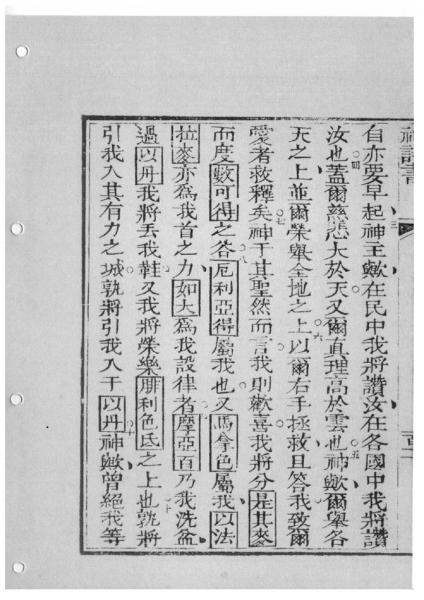 神詩書
自亦要早起神王歟在民中我將讚汝在各國中我將讀
汝也蓋爾慈悲大於天又爾真理高於雲也神歟爾舉各
天之上並爾榮舉全地之上以爾右手拯救且答我致爾
愛者救釋矣神于其聖然而言我則歡喜我將分是其麥
而度數可得之谷厄利亞得屬我也又馬拿色屬我以法
拉麥亦為我首之力如大為我設律者摩亞百乃我洗盆
過以丹我將丟我鞋又我將榮樂腓利色氏之上也孰將
引我入其有力之城孰將引我入于以丹神歟曾絕我等